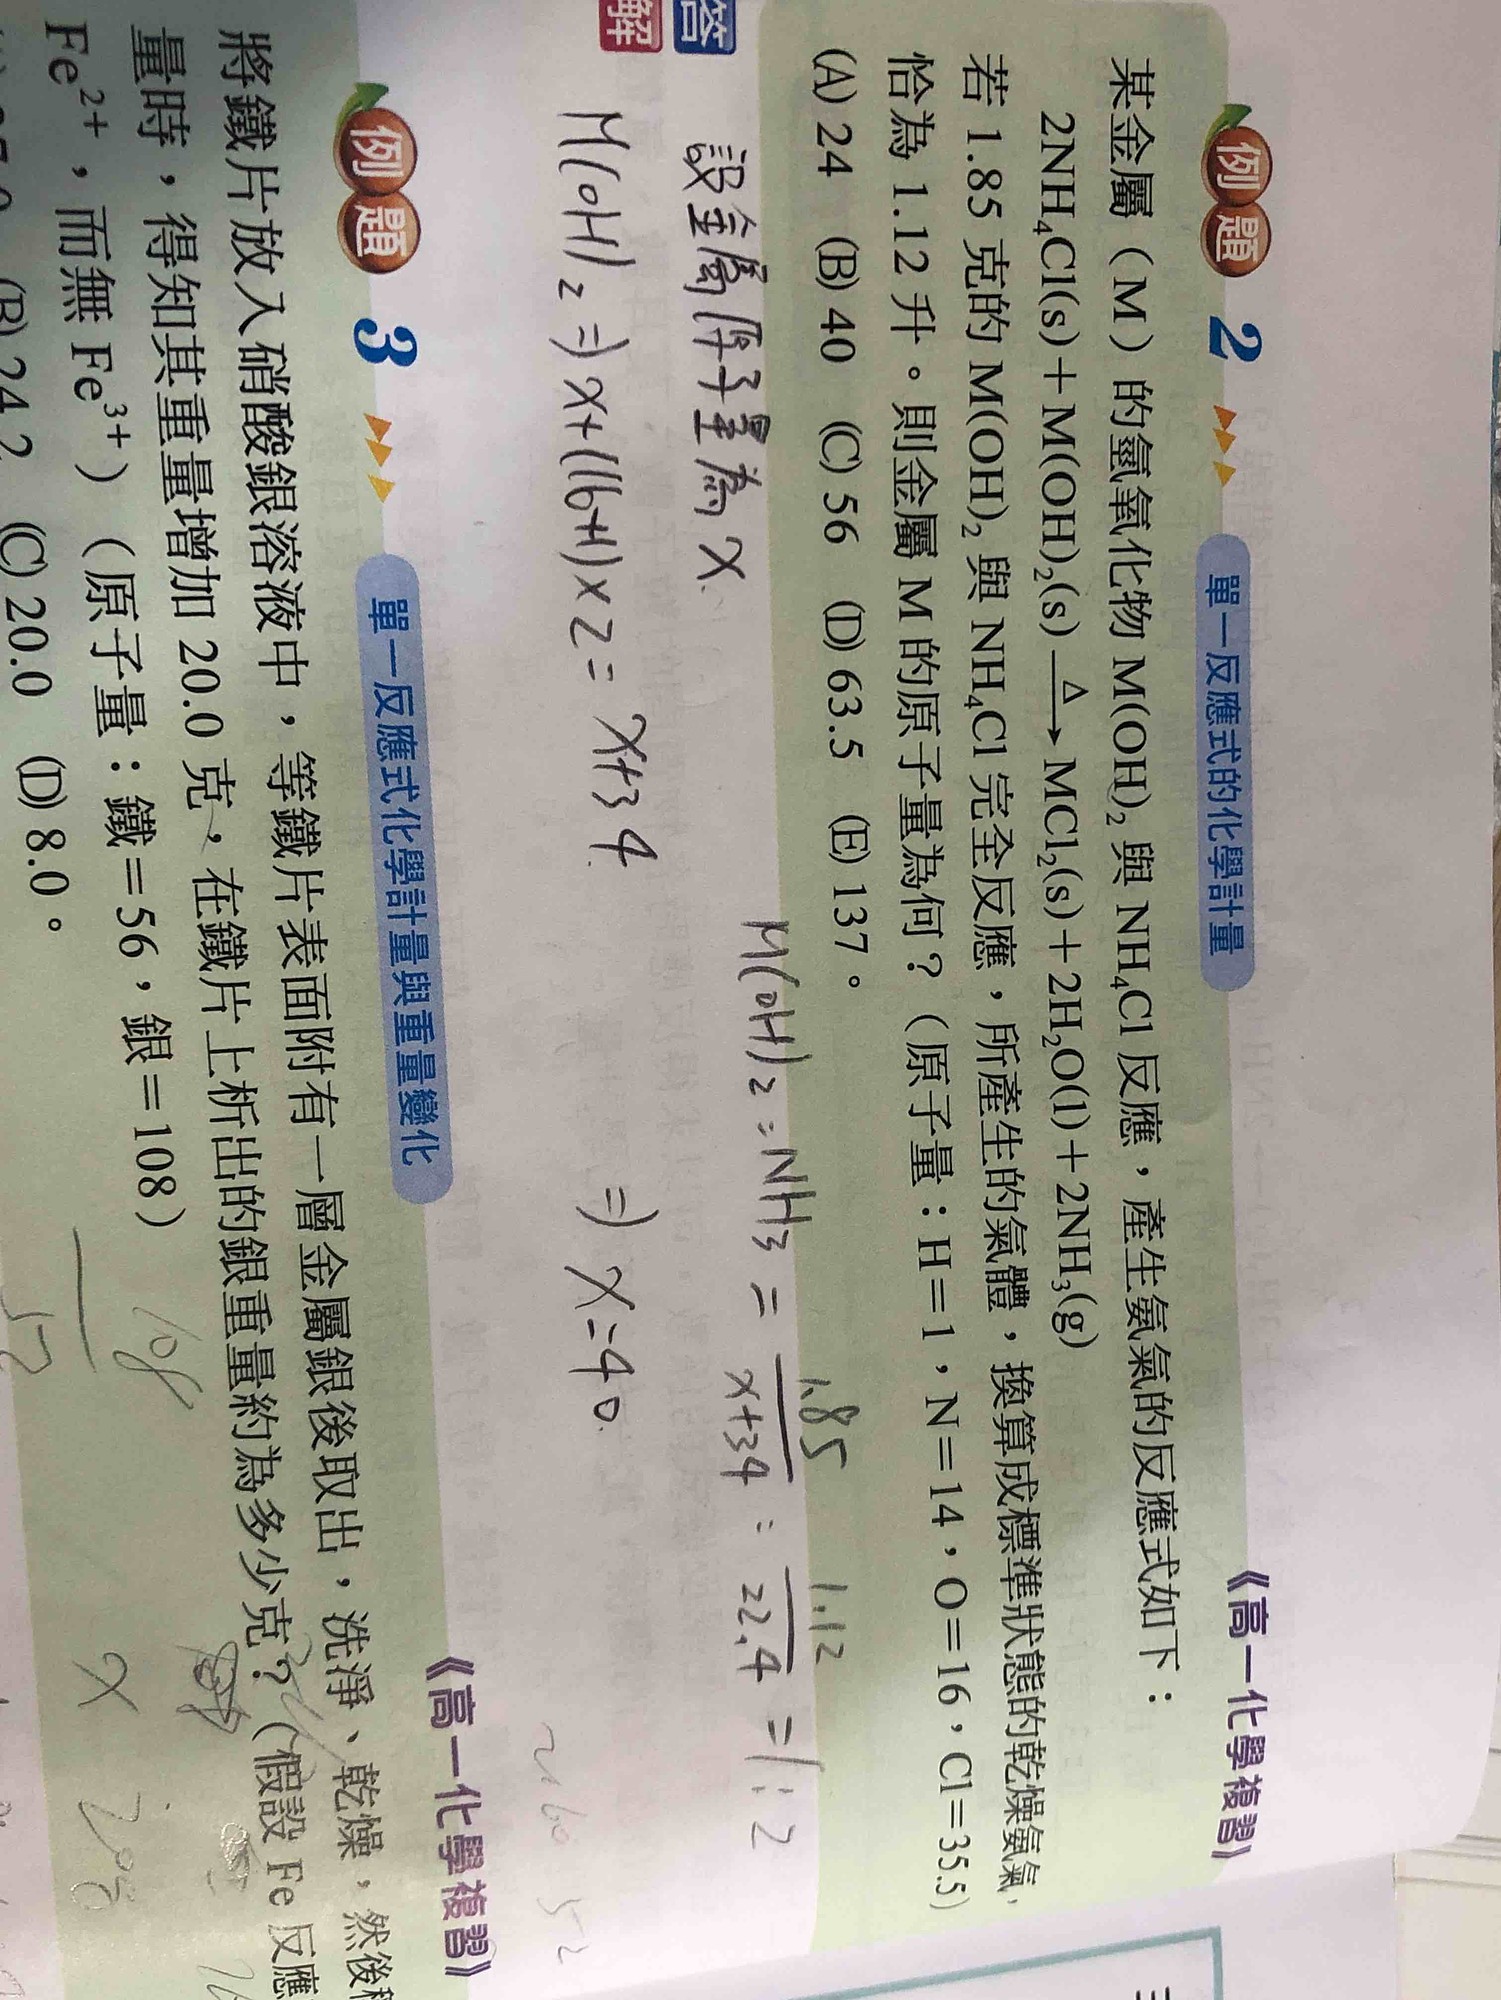 例題 2 單一反應式的化學計量 《高一化學複習》
某金屬(M)的氫氧化物 M(OH)₂ 與 NH₄Cl 反應,產生氨氣的反應式如下:
2NH₄Cl(s)+M(OH)₂(s) —△→ MCl₂(s)+2H₂O(l)+2NH₃(g)
若 1.85 克的 M(OH)₂ 與 NH₄Cl 完全反應,所產生的氣體,換算成標準狀態的乾燥氨氣,
恰為 1.12 升。則金屬 M 的原子量為何?(原子量:H=1,N=14,O=16,Cl=35.5)
(A) 24 (B) 40 (C) 56 (D) 63.5 (E) 137。
答
解
設金屬原子量為 x
M(OH)₂ : NH₃ = 1.85/x+34 : 1.12/22.4 = 1:2
M(OH)₂ ⇒ x+(16+1)×2= x+34
⇒ x=40
例題 3 單一反應式化學計量與重量變化 《高一化學複習》
將鐵片放入硝酸銀溶液中,等鐵片表面附有一層金屬銀後取出,洗淨、乾燥,然後
量時,得知其重量增加 20.0 克,在鐵片上析出的銀重量約為多少克?(假設 Fe 反應
Fe²⁺,而無 Fe³⁺)(原子量:鐵=56,銀=108)
(B) 24.2 (C) 20.0 (D) 8.0。
108
x